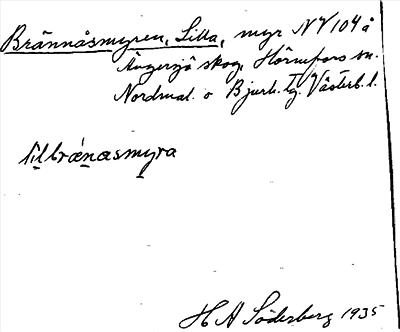 Brännåsmyren, Lilla, myr NV 104 å
Ängersjö skog, Hörnefors sn.
Nordmal. o Bjurh. tg. Västerb. l.
lilbränasmyra
H A Söderberg 1935